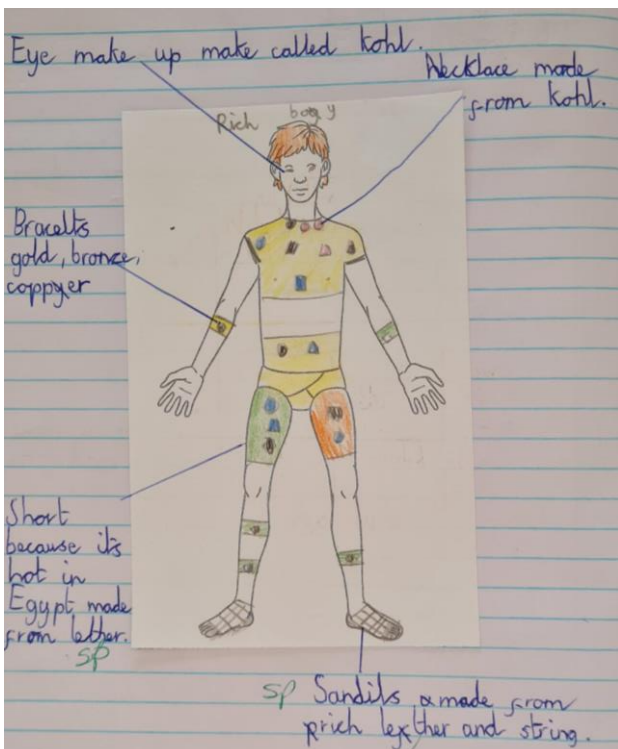 Eye make up make called kohl.
Necklace made
from kohl.
Rich body
Bracelts
gold, bronze,
coppyer
Short
because its
hot in
Egypt made
from lether.
sp
sp Sandils made from
rich lether and string.